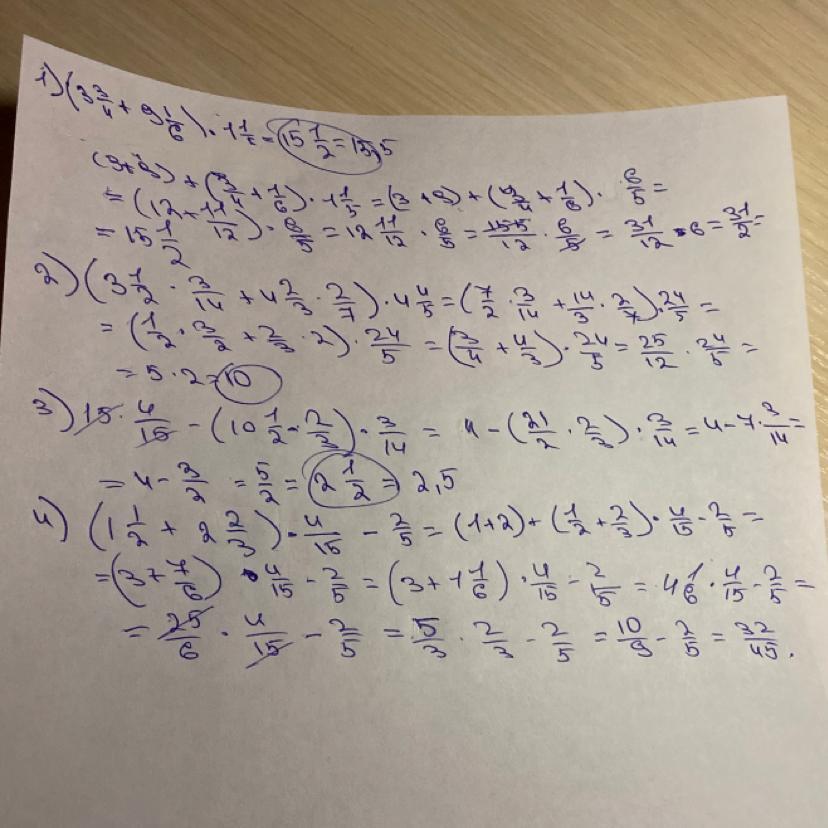 1) (3 3/4 + 9 1/6) · 1 1/5 = 15 1/2 = 15,5
(3+9) + (3/4 + 1/6) · 1 1/5 = (3 + 9) + (3/4 + 1/6) · 6/5 =
= (12 + 11/12) · 6/5 = 12 11/12 · 6/5 = 155/12 · 6/5 = 31/12 · 6 = 31/2 =
= 15 1/2
2) (3 1/2 · 3/14 + 4 2/3 · 2/7) · 4 4/5 = (7/2 · 3/14 + 14/3 · 2/7) · 24/5 =
= (1/2 · 3/2 + 2/3 · 2) · 24/5 = (3/4 + 4/3) · 24/5 = 25/12 · 24/5 =
= 5 · 2 = 10
3) 15 · 4/15 - (10 1/2 · 2/3) · 3/14 = 4 - (21/2 · 2/3) · 3/14 = 4 - 7 · 3/14 =
= 4 - 3/2 = 5/2 = 2 1/2 = 2,5
4) (1 1/2 + 2 2/3) · 4/15 - 2/5 = (1+2) + (1/2 + 2/3) · 4/15 - 2/5 =
= (3 + 7/6) · 4/15 - 2/5 = (3 + 1 1/6) · 4/15 - 2/5 = 4 1/6 · 4/15 - 2/5 =
= 25/6 · 4/15 - 2/5 = 5/3 · 2/3 - 2/5 = 10/9 - 2/5 = 32/45.